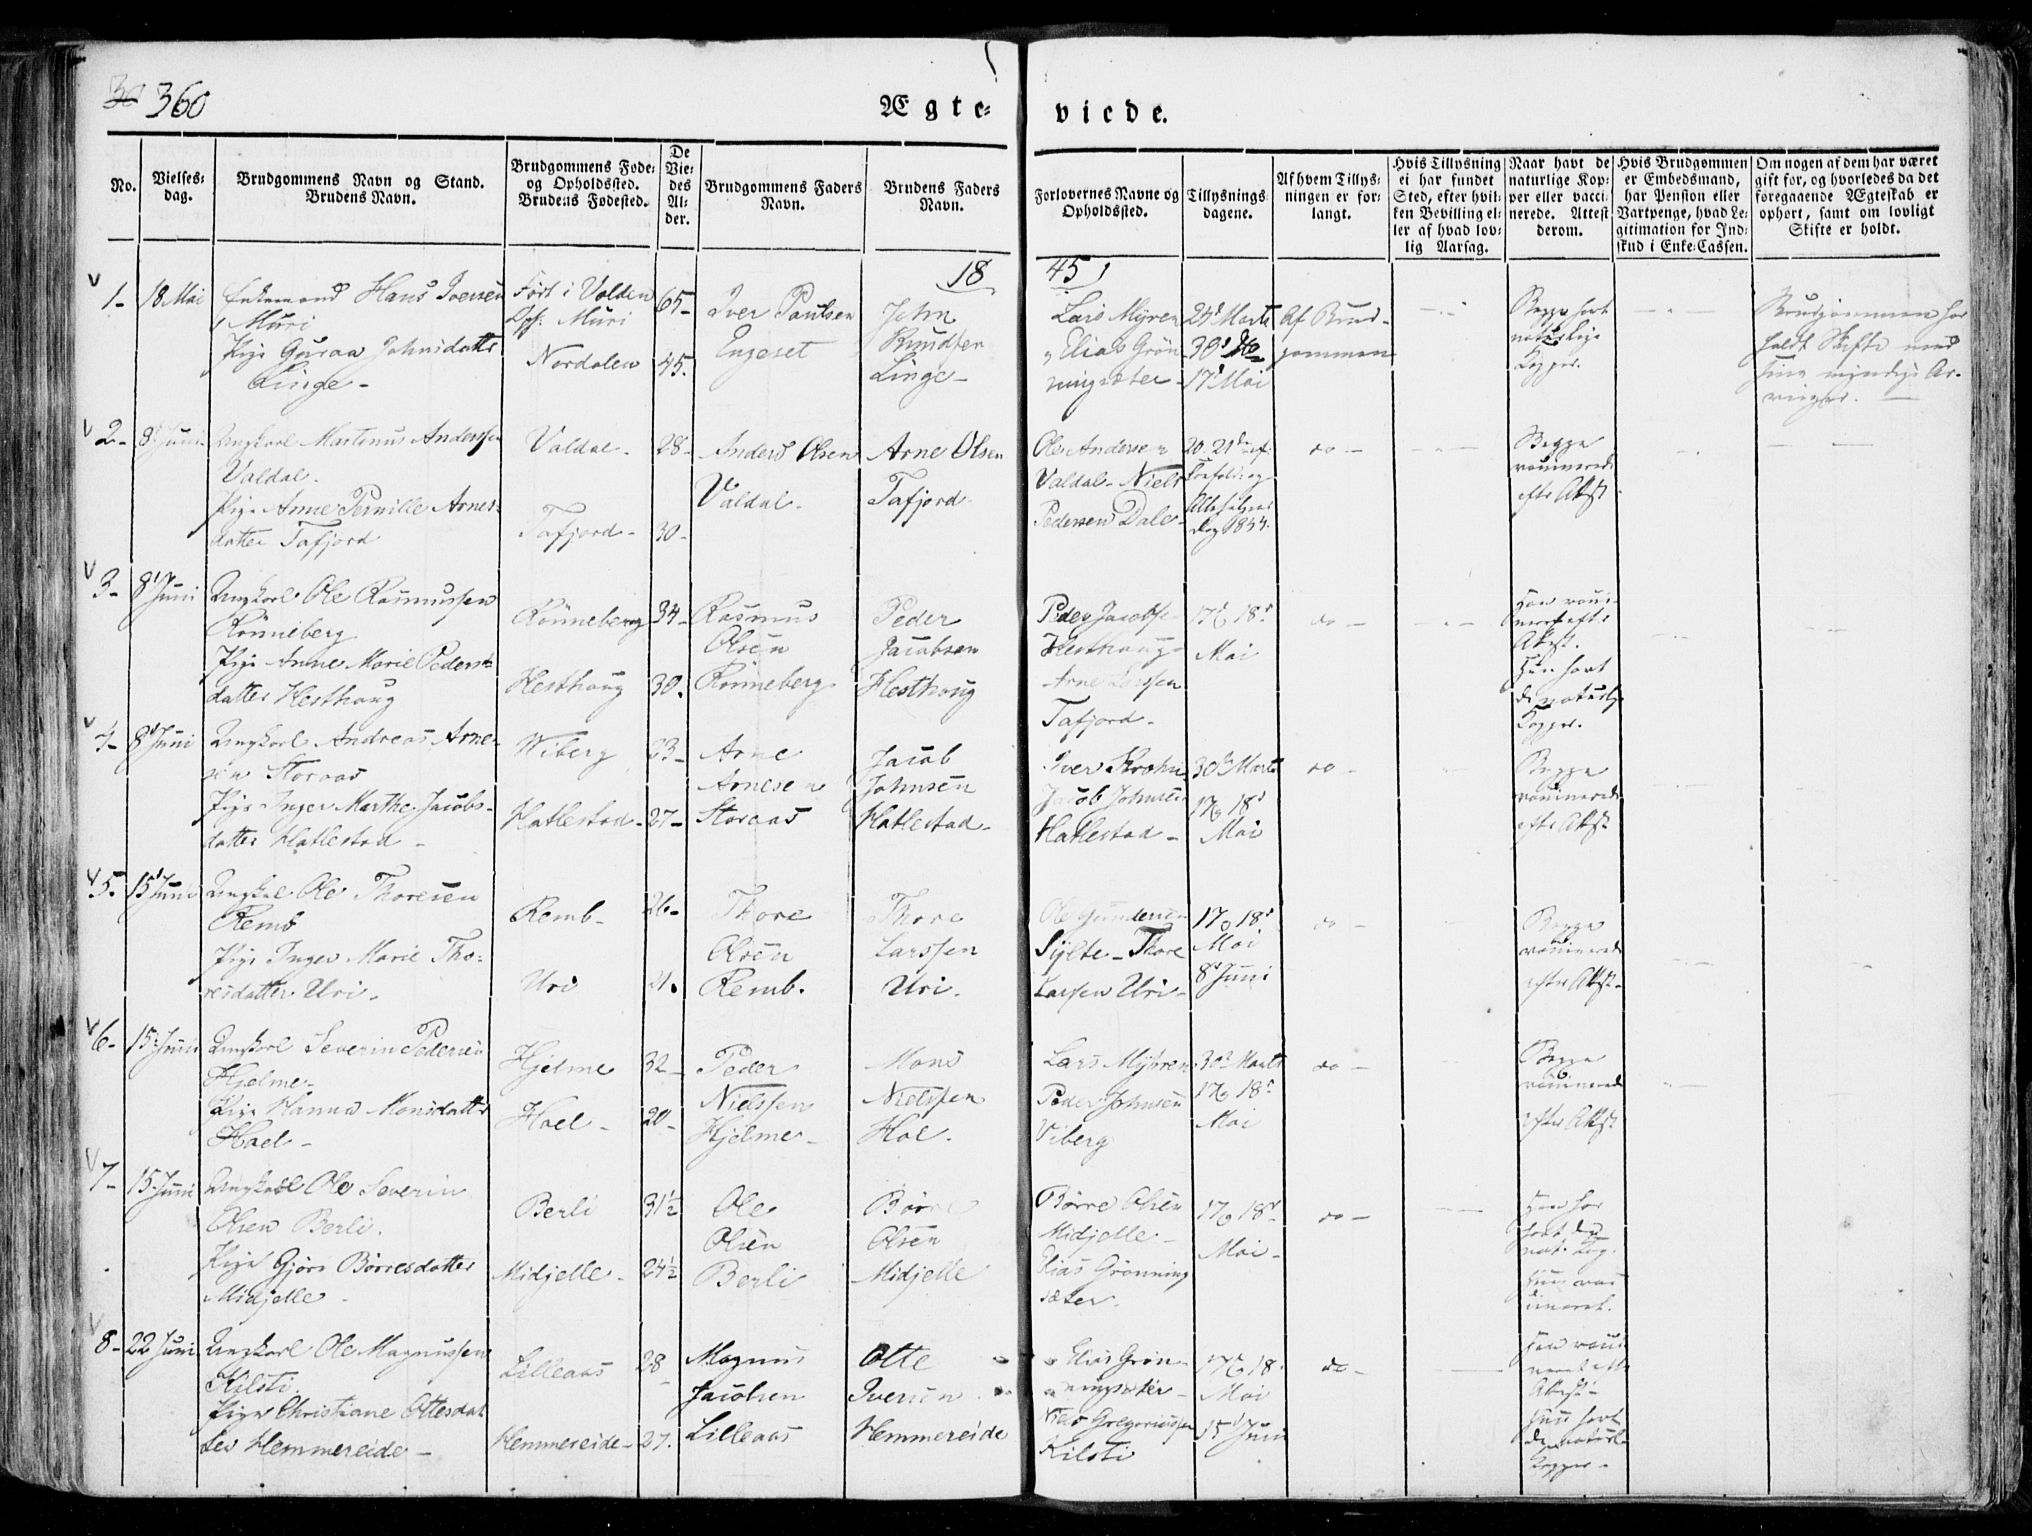 30 360
Ægte-
viede.
No.
Vielses-
dag.
Brudgommens Navn og Stand.
Brudens Navn.
Brudgommens Føde-
og Opholdssted.
Brudens Fødested.
De
Vie-
des
Al-
der.
Brudgommens Faders
Navn.
Brudens Faders
Navn.
Forlovernes Navne og
Opholdssted.
Tillysnings
dagene.
Af hvem Tillys-
ningen er for-
langt.
Hvis Tillysning
ei har fundet
Sted, efter hvil-
ken Bevilling el-
ler af hvad lov-
lig Aarsag.
Naar havt de
naturlige Kop-
per eller vacci-
nerede. Attest
derom.
Hvis Brudgommen
er Embedsmand,
har Pension eller
Vartpenge, hvad Le-
gitimation for Ind-
skud i Enke-Cassen.
Om nogen af dem har været
gift før, og hvorledes da det
foregaaende Ægteskab er
ophørt, samt om lovligt
Skifte er holdt.
18
45
1-
18 Mai
Enkemand Hans Iversen
Muri
Pige Guraa Johnsdatter
Linge-
Født i Volden
Muri
Nordalen
65-
45.
Iver Paulsen
Engeset
John
Knudsen
Linge-
Lars Myren
Elias Grøn
ningsæter-
24d Marts
30d
17d Mai
Af Brud-
gommen
Begge havt
naturlige
Kopper.
Brudgommen har
holdt Skifte med
sine myndige Ar-
vinger. -
2-
8 Juni
Ungkarl Martinus Anderssen
Valdal.
Pige Anne Pernille Arnes-
datter Tafjord
Valdal-
Tafjord-
28-
30-
Anders Olsen
Valdal-
Arne Olsen
Tafjord-
Ole Andersen
Valdal- Niels
Pedersen Dale-
20. 21de
Dag 1844.
do -
Begge
vaccinerede
efter Attest
3-
8 Juni
Ungkarl Ole Rasmussen
Rønneberg
Pige Anne Marie Peders-
datter Hesthaug
Rønneberg
Hesthaug
34-
30.
Rasmus
Olsen
Rønneberg
Peder
Jacobsen
Hesthaug
Peder Jacobse
Hesthaug-
Arne Larssen
Tafjord-
17 og 18d
Mai
do -
Han vacci-
neret efter
Attest.
Hun havt
de naturlig
Kopper.
4-
8 Juni
Ungkarl Andreas Arne-
sen Storaas
Pige Inger Marthe Jacobs-
datter Hatlestad -
Wiberg
Hatlestad-
23-
27-
Arne
Arnesen
Storaas
Jacob
Johnsen
Hatlestad-
Iver Krohn
Jacob Johnsen
Hatlestad-
30 Marts
17 og 18d
Mai
do -
Begge
vaccinerede
efter Attest
5.
15 Juni
Ungkarl Ole Thoresen
Remb
Pige Inger Marie Tho-
resdatter Uri-
Remb-
Uri
26-
21.
Thore
Olsen
Remb.
Thore
Larssen
Uri.
Ole Gundersen
Sylte- Thore
Larsen Uri-
17 og 18d
Mai
8d Juni
do -
Begge
vaccinerede
efter Attest-
6-
15 Juni
Ungkarl Severin Pedersen
Hjelme-
Pige Hanna Monsdatter
Hoel-
Hjelme
Hoel-
32-
20-
Peder
Nielssen
Hjelme-
Mons
Nielssen
Hoe-
Lars Myhren
Peder Johnsen
Viberg
30 Marts
17 og 18d
Mai
do -
Begge
vaccinerede
efter Attest
7-
15 Juni
Ungkarl Ole Severin
Olsen Berli.
Pige Gjøre Børresdatter
Midjelle-
Berli
Midjelle-
31½
24½
Ole
Olsen
Berli
Børre
Olsen
Midjelle
Børre Olsen
Midjelle-
Elias Grønning
sæter.
17 og 18d
Mai-
do -
Han har
havt de
nat. Kop.
Hun vac
cineret.
8-
22 Juni
Ungkarl Ole Magnussen
Kilsti
Pige Christiane Ottesdat
ter Hemmereide-
Lilleaas
Hemmereide-
28
27.
Magnus
Jacobsen
Lilleaas
Otte
Iversen
Hemmereide
Elias Grøn-
ningsæter-
Gregoriussen
Kilsti
17 og 18
Mai
15 Juni
do -
Han vacci
neret efter
Attest-
Hun havt
de naturl.
Kopper-